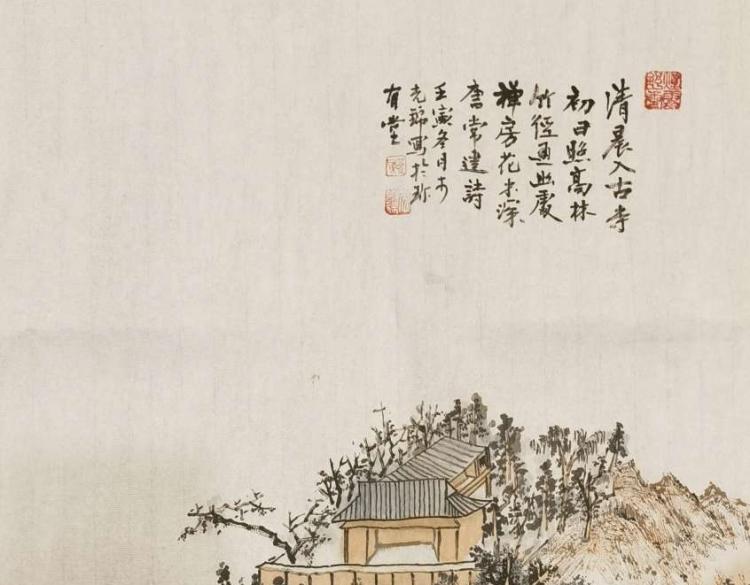 清晨入古寺
初日照高林
竹徑通幽處
禪房花木深
唐常建詩
壬寅冬月
寫於珎
有堂